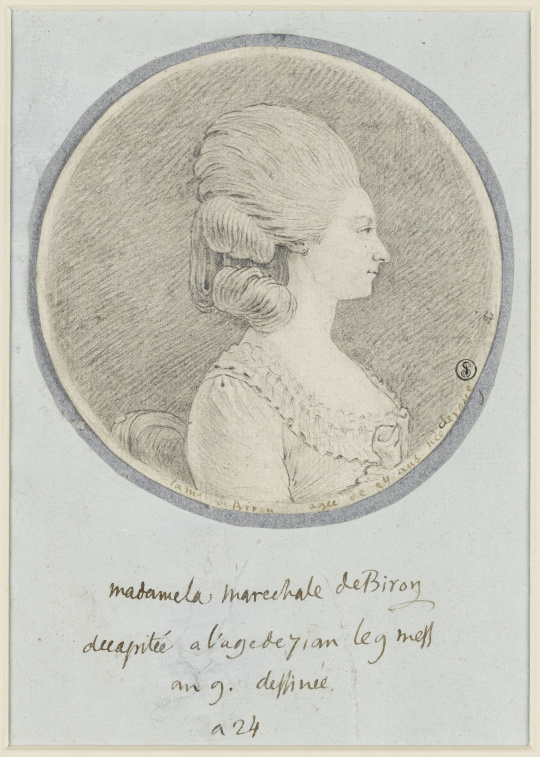 67
Dame de Biron agée de 24 ans née de roye
madame la marechale de Biron
decapitée a l'age de 71 an le 9 mess
an 9. dessinée
a 24